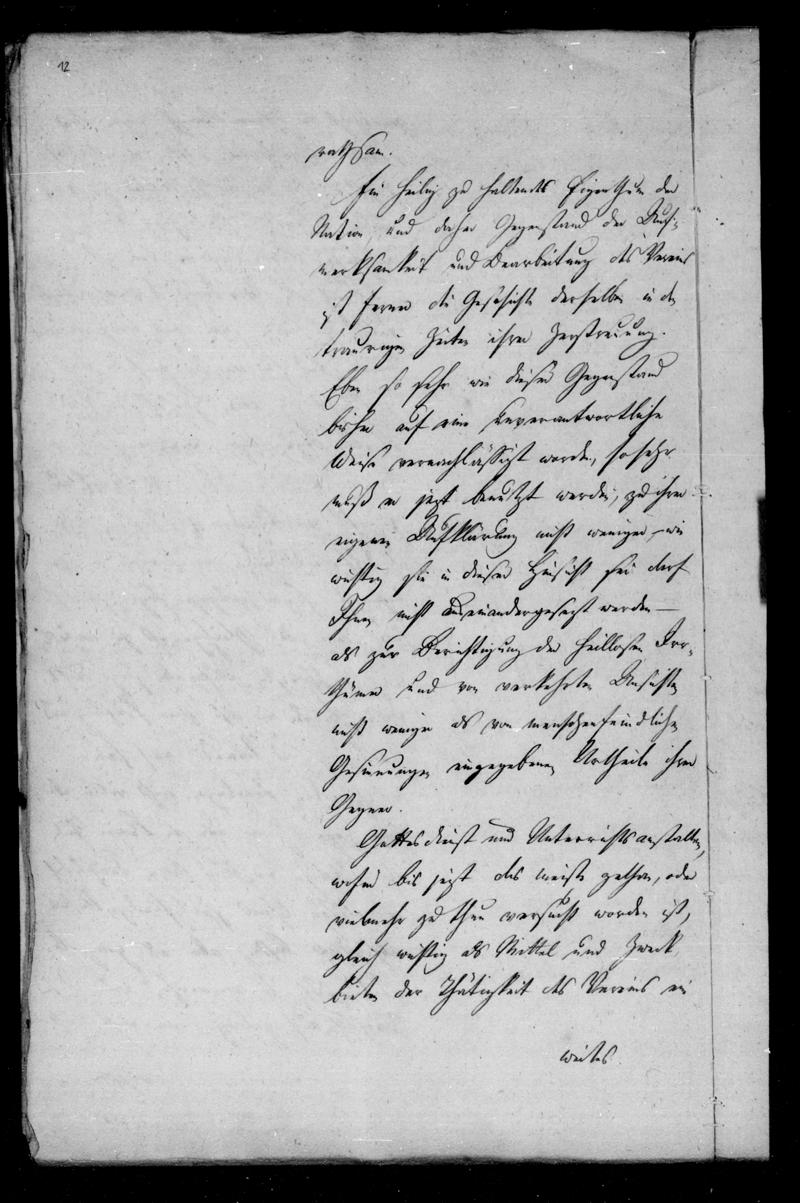 12
rathsam.
Ein heilig zu haltendes Eigenthum der
Nation und daher Gegenstand der Auf-
merksamkeit und Bearbeitung des Vereins
ist ferner die Geschichte derselben in den
traurigen Zeiten ihrer Zerstreuung.
Eben so sehr wie dieser Gegenstand
bisher auf eine unverantwortliche
Weise vernachlässigt worden, so sehr
muß er jezt benutzt werden, zu ihrer
eigenen Aufklärung nicht weniger, – wie
wichtig sie in dieser Hinsicht sei darf
Ihnen nicht auseinandergesezt werden –
als zur Berichtigung der heillosen Irr-
thümer und von verkehrten Ansichten
nicht weniger als von menschenfeindlichen
Gesinnungen eingegebenen Urtheile ihrer
Gegner.
Gottesdienst und Unterrichtsanstalten,
wofür bis jezt das meiste gethan, oder
vielmehr zu thun versucht worden ist,
gleich wichtig als Mittel und Zweck
bieten der Thätigkeit des Vereins ein
weites